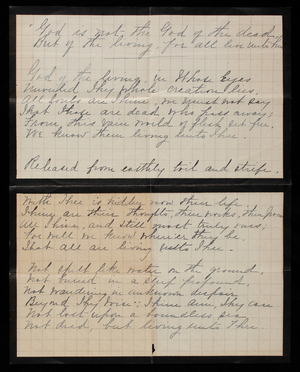 "God is not the God of the dead,
But of the living: for all live unto Him
God of the living, in Whose Eyes
Unveiled Thy whole creation lies,
All souls are Thine; we must not say
That those are dead who pass away;
From this our world of flesh set free,
We know them living unto Thee.
Released from earthly toil and strife,
With Thee is hidden now their life.
Thine are their thoughts, their works, their powers
All Thine, and still most truly ours,
For well we know where'er they be
That all are living unto Thee.
Not spilt like water on the ground,
Not buried in sleep profound,
Not wandering in unknown despair
Beyond Thy Voice, Thine Arm, Thy care
Not lost upon a boundless sea
Not dead, but living unto Thee.